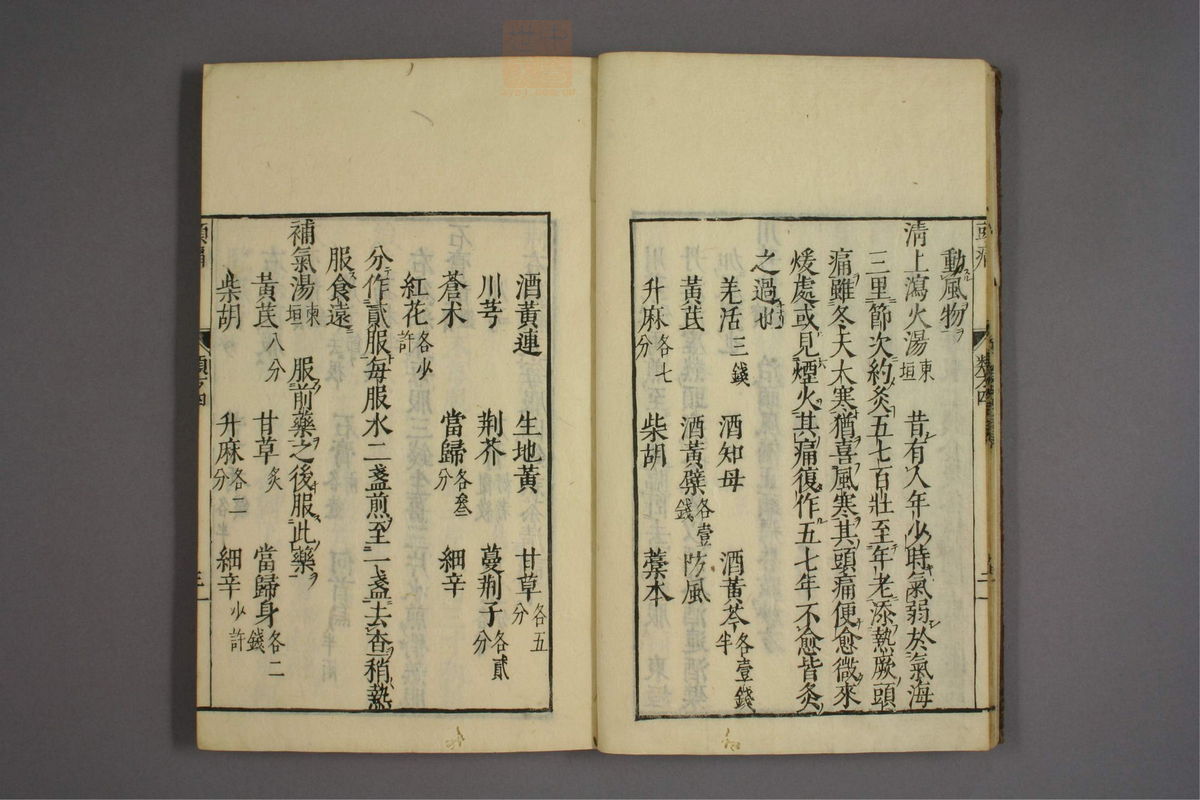 頭痛
類分四
三
動風物
清上瀉火湯 東垣 昔有人年少時氣弱於氣海
三里節次約灸五七百壯至年老添熱厥頭
痛雖冬天大寒猶喜風寒其頭痛便愈微來
煖處或見煙火其痛復作五七年不愈皆灸
之過也
羌活三錢 酒知母 酒黃芩各壹錢半
黃芪 酒黃檗各壹錢 防風
升麻各七分 柴胡 藁本
酒黃連 生地黃 甘草各五分
川芎 荆芥 蔓荆子各貳分
蒼朮 當歸各叁分 細辛
紅花各少許
分作貳服每服水二盞煎至一盞去查稍熱
服食遠
補氣湯 東垣 服前藥之後服此藥
黃芪八分 甘草炙 當歸身各二錢
柴胡 升麻各二分 細辛少許
頭痛
類分四
三